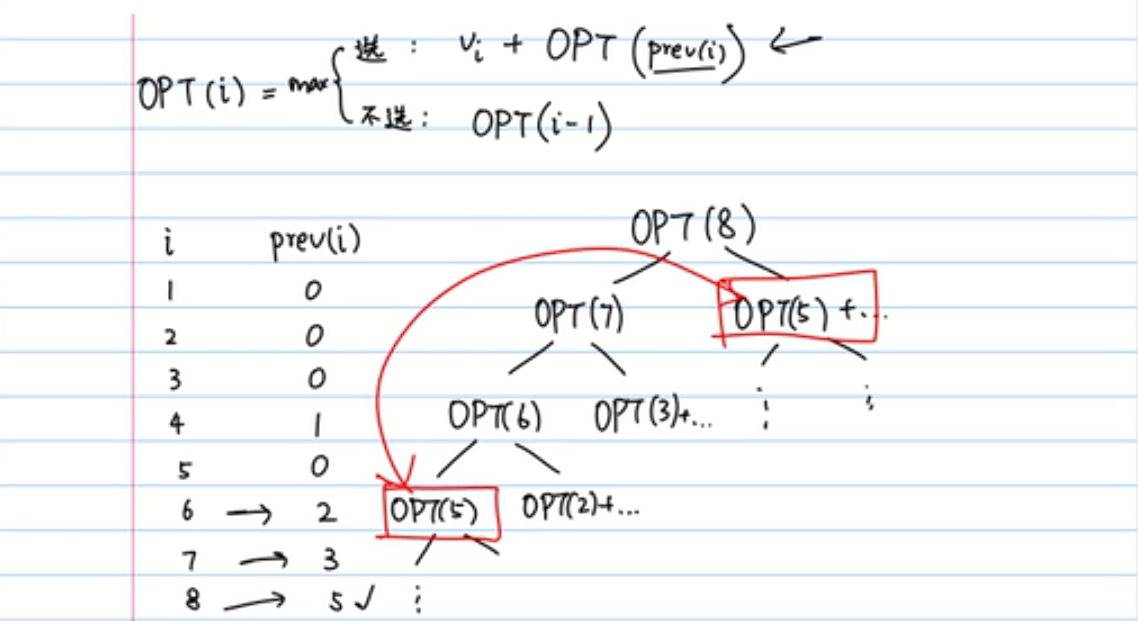 OPT(i) = max { 选 : vi + OPT (prev(i)) ←
不选 : OPT(i-1)
i prev(i)
1 0
2 0
3 0
4 1
5 0
6 → 2
7 → 3
8 → 5 ✓
OPT(8)
OPT(7) OPT(5) +...
OPT(6) OPT(3)+...
OPT(5) OPT(2)+...